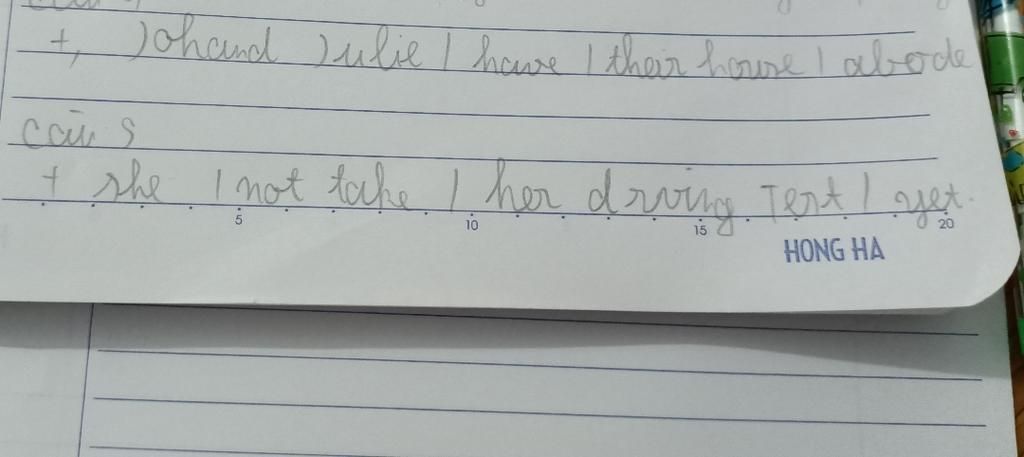 +, Johand Julie / have / their house / abode
câu 5
+ she / not take / her driving Test / yet.
5 10 15 20
HONG HA